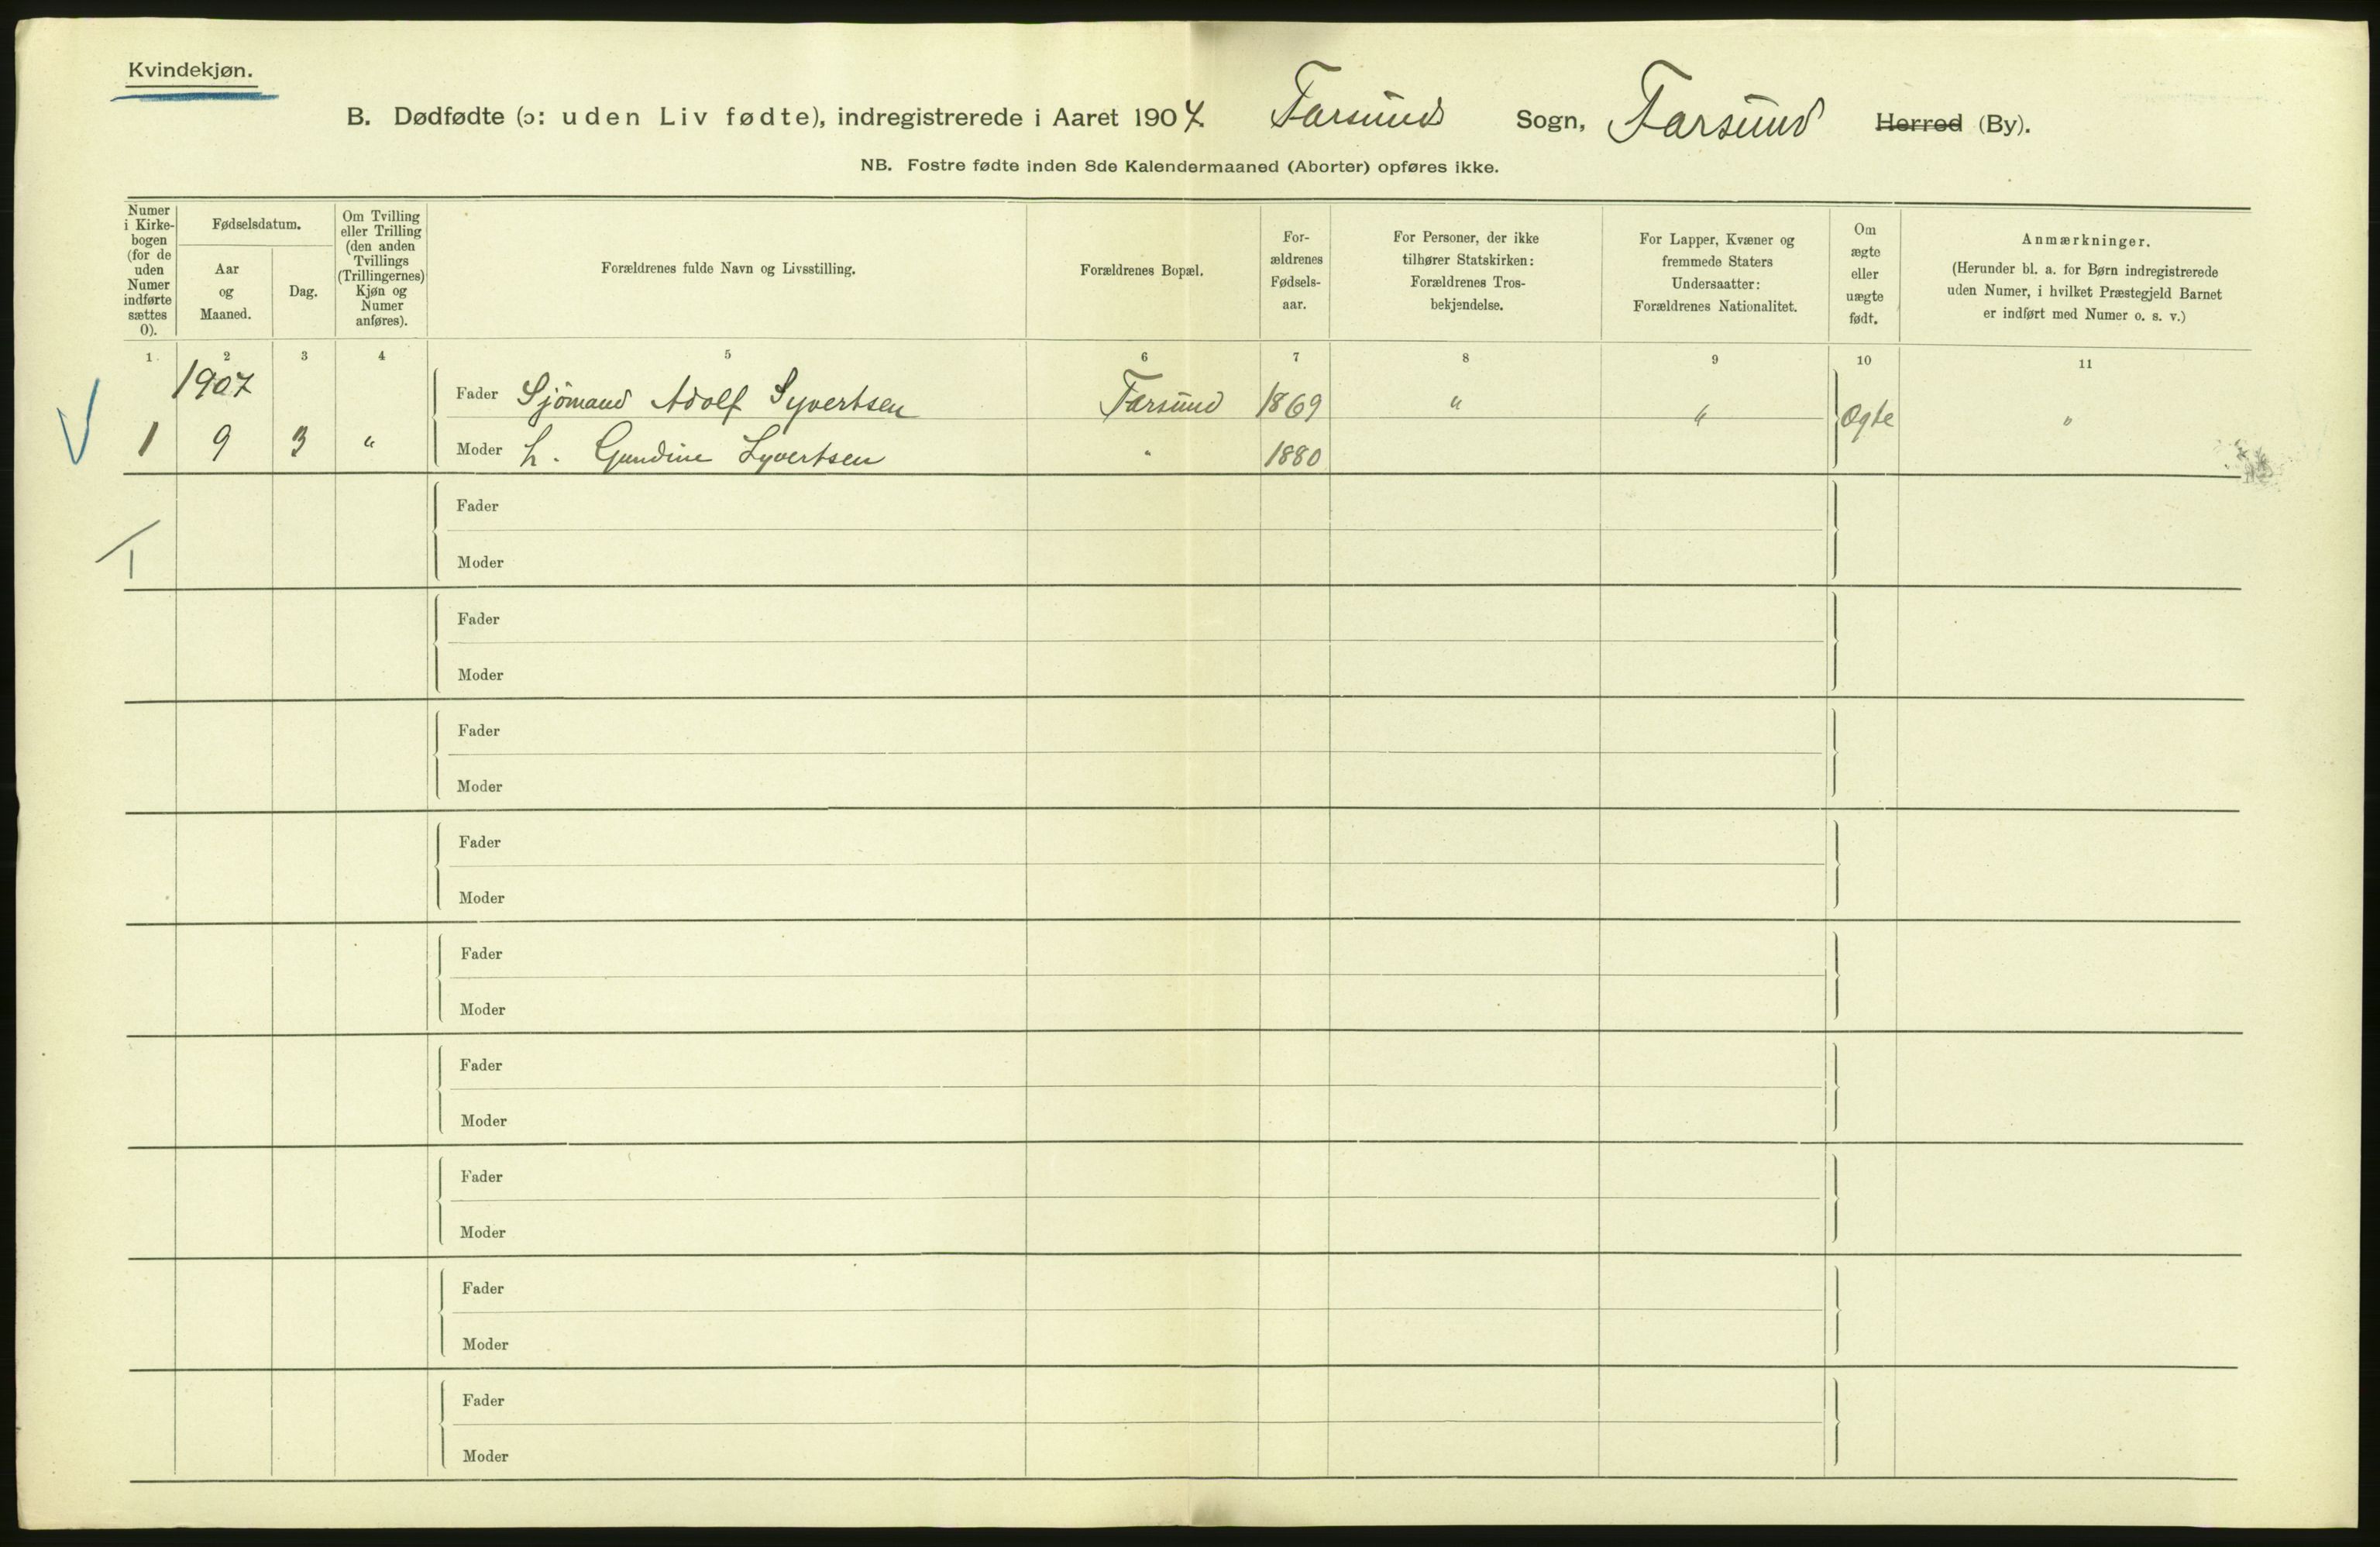 Kvindekjøn.
B. Dødfødte (ɔ: uden Liv fødte), indregistrerede i Aaret 1907 Farsund Sogn, Farsund Herred (By).
NB. Fostre fødte inden 8de Kalendermaaned (Aborter) opføres ikke.
Numer i Kirke-bogen (for de uden Numer indførte sættes 0).
Fødselsdatum.
Aar og Maaned.
Dag.
Om Tvilling eller Trilling (den anden Tvillings (Trillingernes) Kjøn og Numer anføres).
Forældrenes fulde Navn og Livsstilling.
Forældrenes Bopæl.
For-ældrenes Fødsels-aar.
For Personer, der ikke tilhører Statskirken: Forældrenes Tros-bekjendelse.
For Lapper, Kvæner og fremmede Staters Undersaatter: Forældrenes Nationalitet.
Om ægte eller uægte født.
Anmærkninger.
(Herunder bl. a. for Børn indregistrerede uden Numer, i hvilket Præstegjeld Barnet er indført med Numer o. s. v.)
1 2 3 4 5 6 7 8 9 10 11
1907
Fader Sjömand Adolf Syvertsen Farsund 1869 " " Ægte "
1 9 3 " Moder h. Gundine Syvertsen " 1880
Fader
Moder
Fader
Moder
Fader
Moder
Fader
Moder
Fader
Moder
Fader
Moder
Fader
Moder
Fader
Moder
Fader
Moder